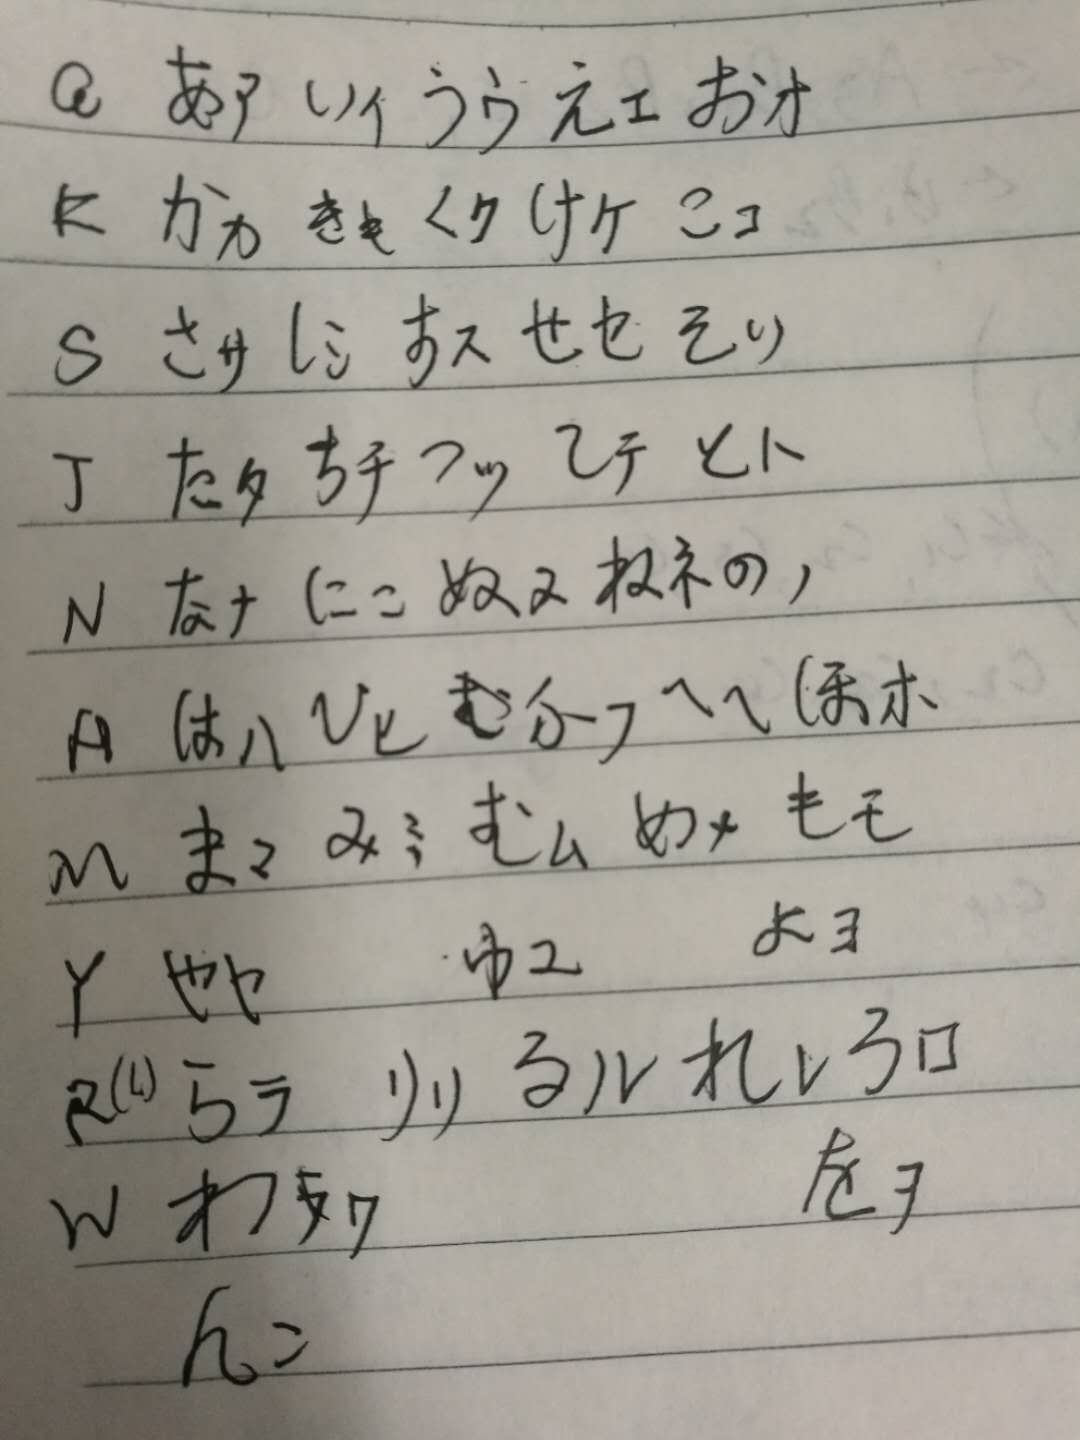 a あア いイ うウ えエ おオ
K かカ きキ くク けケ こコ
S さサ しシ すス せセ そソ
T たタ ちチ つツ てテ とト
N なナ にニ ぬヌ ねネ のノ
H はハ ひヒ ふフ へヘ ほホ
M まマ みミ むム めメ もモ
Y やヤ ゆユ よヨ
R(L) らラ りリ るル れレ ろロ
W わワ をヲ
んン